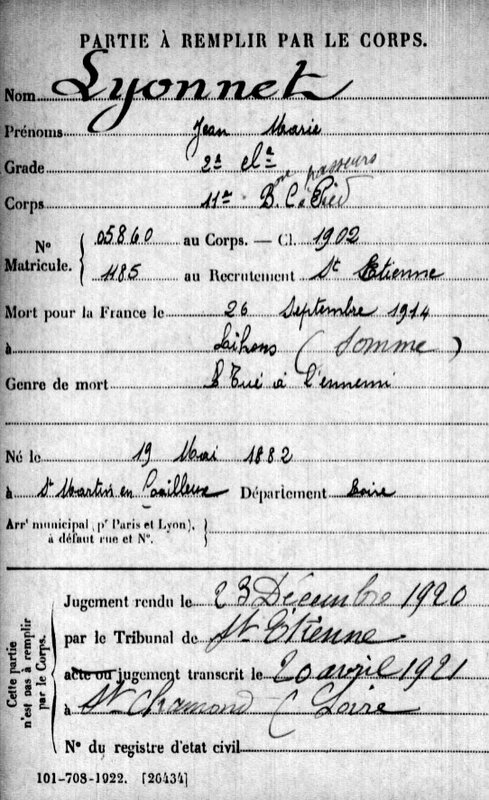 PARTIE À REMPLIR PAR LE CORPS.
Nom Lyonnet
Prénoms Jean Marie
Grade 2e cl
Corps 11e B. C. à Pied
N° Matricule. 05860 au Corps. — Cl. 1902
485 au Recrutement St Etienne
Mort pour la France le 26 Septembre 1914
à Lihons (Somme)
Genre de mort Tué à l'ennemi
Né le 19 Mai 1882
à St Martin en Coailleux Département Loire
Arrt municipal (pr Paris et Lyon),
à défaut rue et N°.
Cette partie n'est pas à remplir par le Corps.
Jugement rendu le 23 Décembre 1920
par le Tribunal de St Etienne
acte ou jugement transcrit le 20 avril 1921
à St Chamond (Loire
N° du registre d'état civil
101-708-1922. [26434]